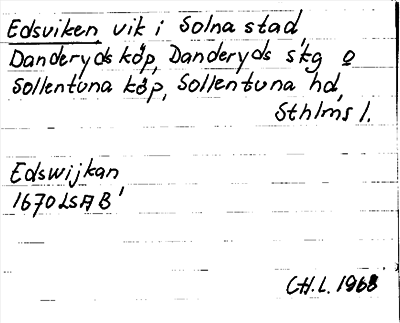 Edsviken vik i Solna stad
Danderyds köp, Danderyds skg o
Sollentuna köp, Sollentuna hd,
Sthlms l.
Edswijkan
1670 LSAB
C.H.L. 1968